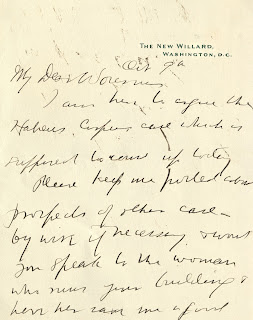 THE NEW WILLARD,
WASHINGTON, D.C.
Oct 9th
My Dear
I am here to argue the
Habeas Corpus case which is
supposed to come up today
Please keep me posted about
prospects of other case—
by wire if necessary & wont
you speak to the woman
who runs your building &
have her save me a good